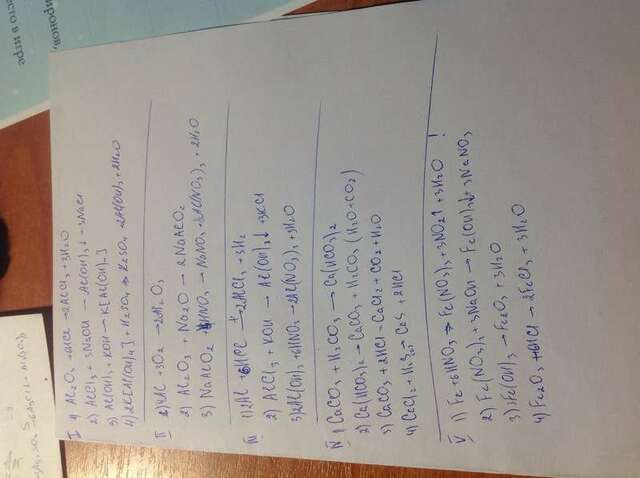 I 1) Al2O3 + 6HCl → 2AlCl3 + 3H2O
2) AlCl3 + 3NaOH → Al(OH)3↓ + 3NaCl
3) Al(OH)3 + KOH → K[Al(OH)4]
4) 2K[Al(OH)4] + H2SO4 → K2SO4 + 2Al(OH)3 + 2H2O
II 1) 4Al + 3O2 → 2Al2O3
2) Al2O3 + Na2O → 2NaAlO2
3) NaAlO2 + 4HNO3 → NaNO3 + Al(NO3)3 + 2H2O
III 1) 2Al + 6HCl → 2AlCl3 + 3H2
2) AlCl3 + KOH → Al(OH)3↓ + 3KCl
3) 2Al(OH)3 + 6HNO3 → 2Al(NO3)3 + 3H2O
IV 1) CaCO3 + H2CO3 → Ca(HCO3)2
2) Ca(HCO3)2 → CaCO3 + H2CO3 (H2O + CO2)
3) CaCO3 + 2HCl → CaCl2 + CO2 + H2O
4) CaCl2 + H2S → CaS + 2HCl
V 1) Fe + 6HNO3 → Fe(NO3)3 + 3NO2↑ + 3H2O !
2) Fe(NO3)3 + 3NaOH → Fe(OH)3↓ + 3NaNO3
3) Fe(OH)3 → Fe2O3 + 3H2O
4) Fe2O3 + 6HCl → 2FeCl3 + 3H2O